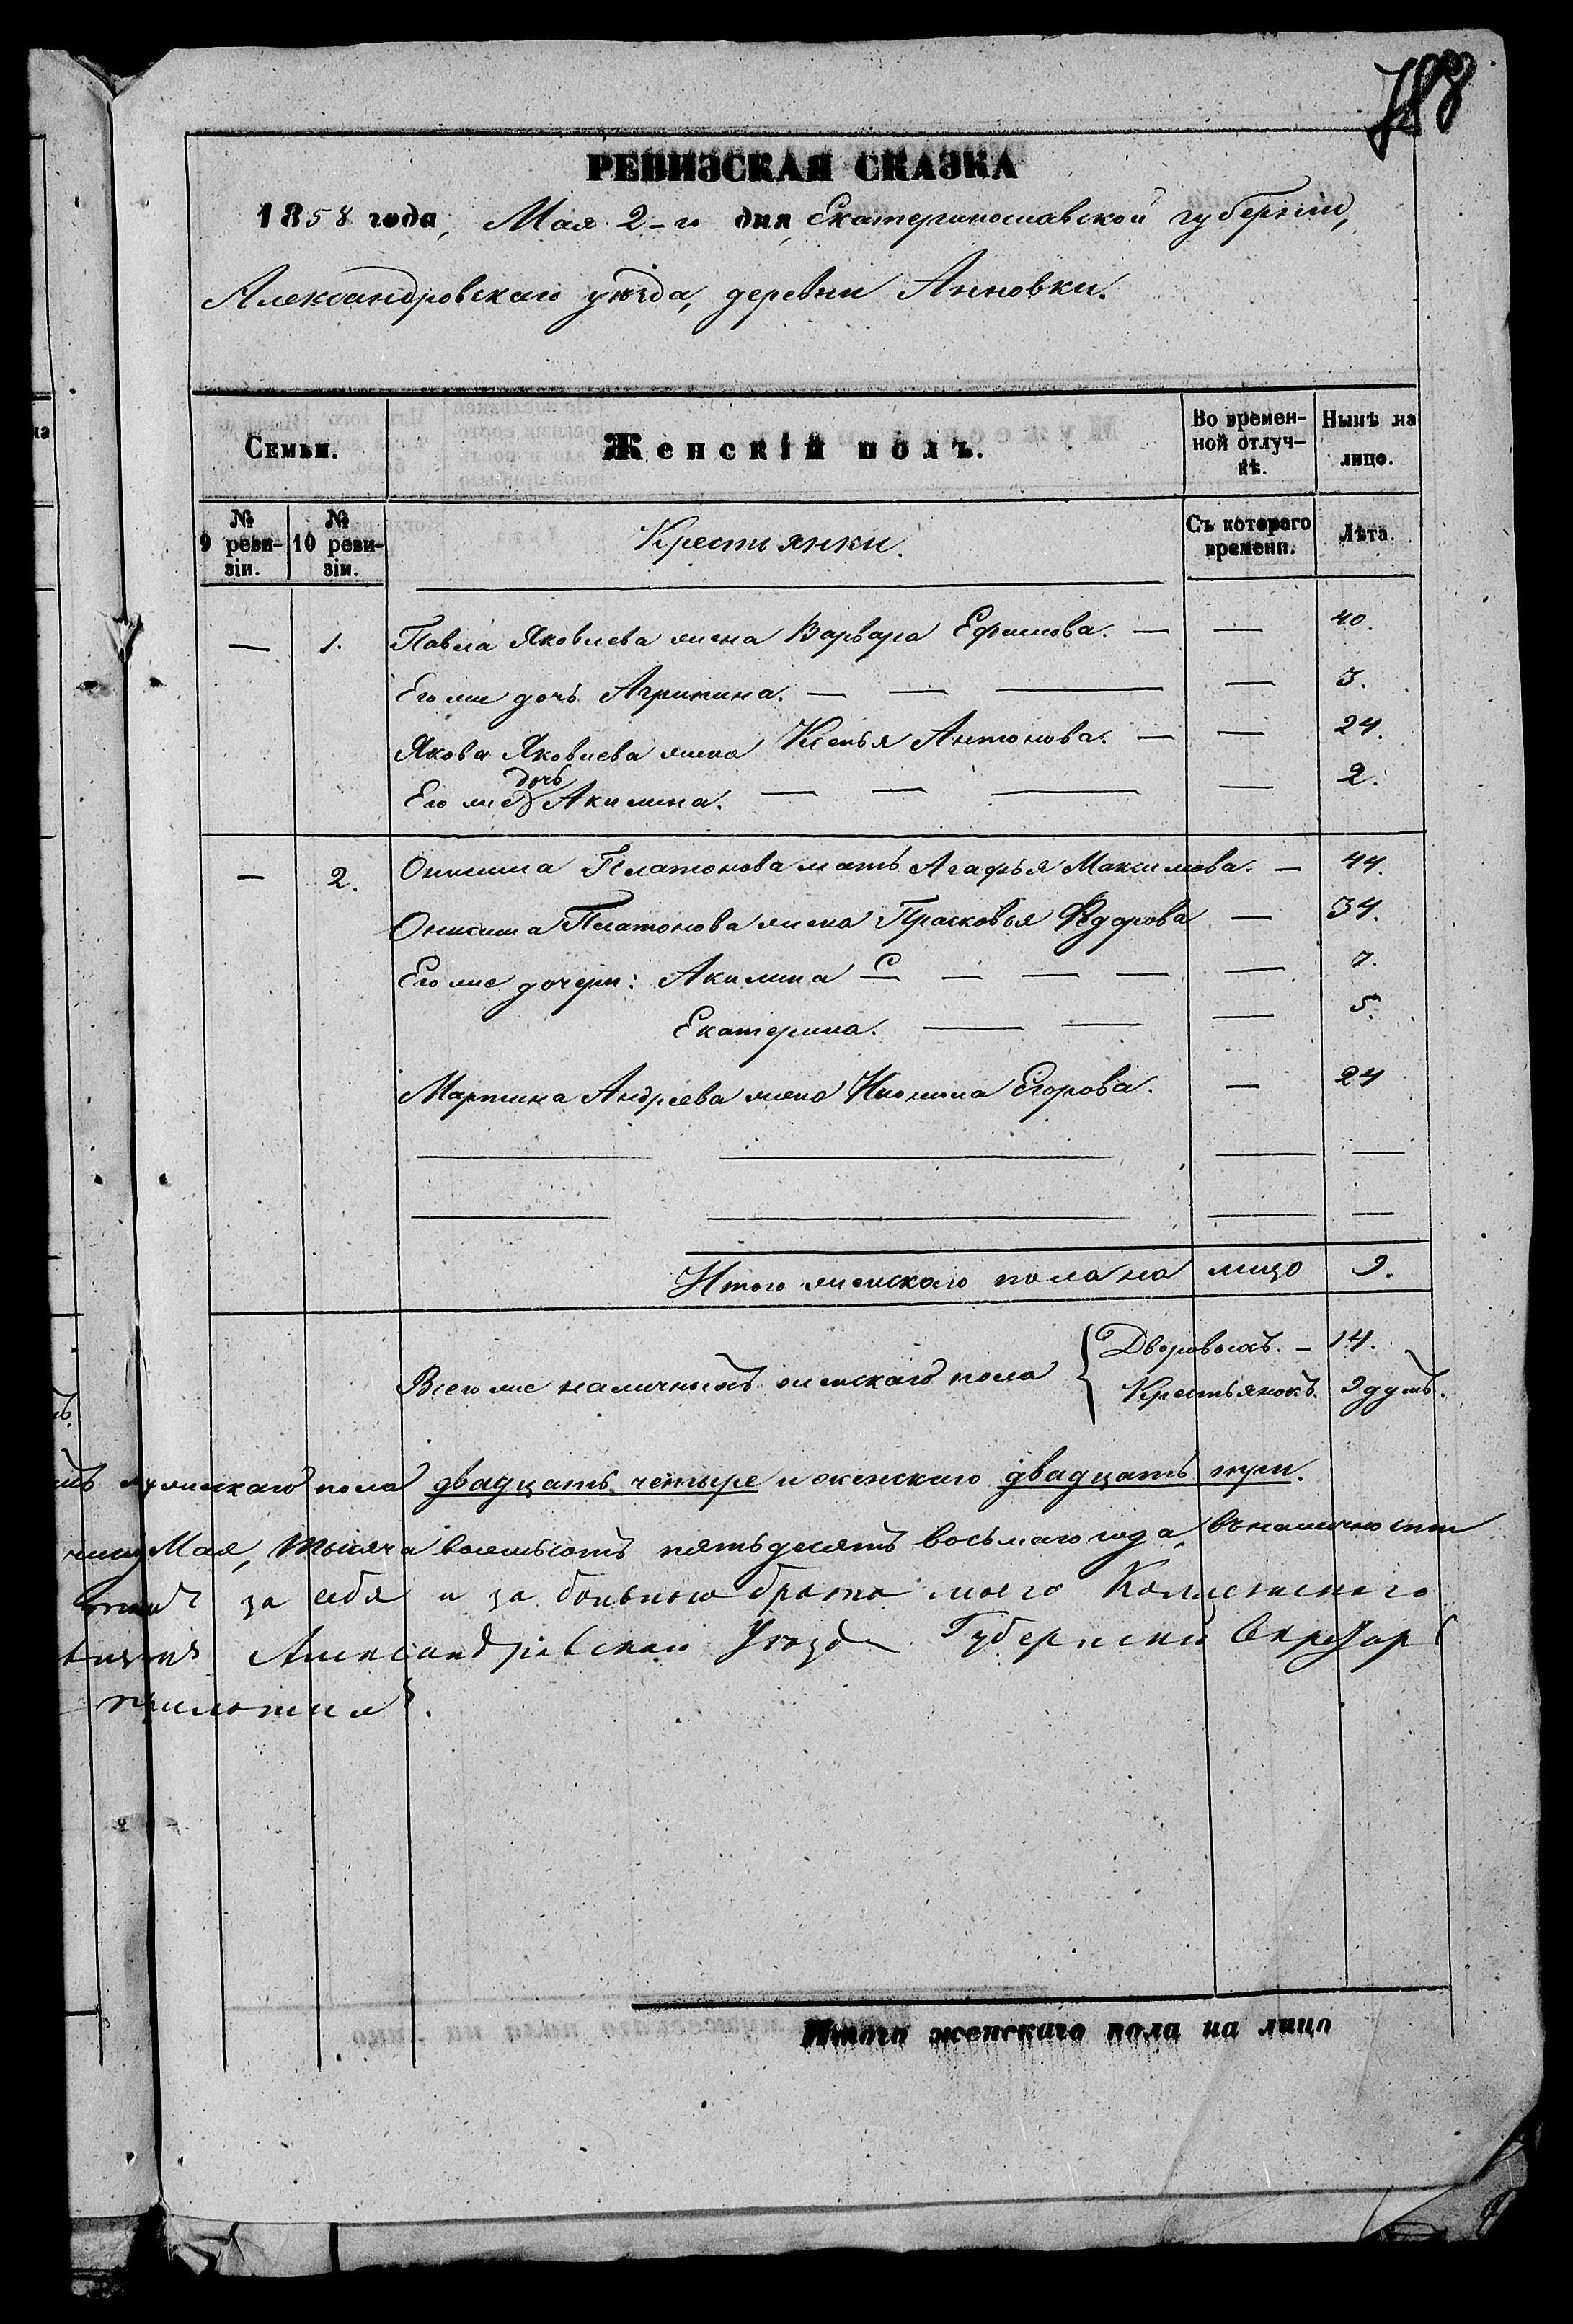 788
РЕВИЗСКАЯ СКАЗКА
1858 года, Мая 2-го дня, Екатеринославской губернии,
Александровскаго уѣзда, деревни Анновки.
Семьи.
Женскій полъ.
Во времен-
ной отлуч-
кѣ.
Нынѣ на
лицо.
№
9 реви-
зіи.
№
10 реви-
зіи.
Крестьянки.
Съ котораго
времени.
Лѣта.
— 1. Павла Яковлева жена Варвара Ефимова. — — 40.
Его же дочь Агрипина. — — — — 3.
Якова Яковлева жена Ксенья Антонова. — — 24.
дочь
Его же Акилина. — — — — 2.
— 2. Онисима Платонова мать Агафья Максимова. — 44.
Онисима Платонова жена Прасковья Федорова — 34.
Его же дочери: Акилина — — — — — 7.
Екатерина. — — — 5.
Мартина Андреева жена Егорова. — 24
Итого женскаго пола на лицо 9.
Всего же наличныхъ женскаго пола
Дворовыхъ. — 14.
Крестьянокъ. 9 душъ.
мужескаго пола двадцать четыре и женскаго двадцать три.
Мая, тысяча восемьсотъ пятьдесятъ восьмаго года, въ наличности
за себя и за больного брата моего
Александровскаго Уѣзда Губернскій Секретарь
приложилъ.
Итого женскаго пола на лицо